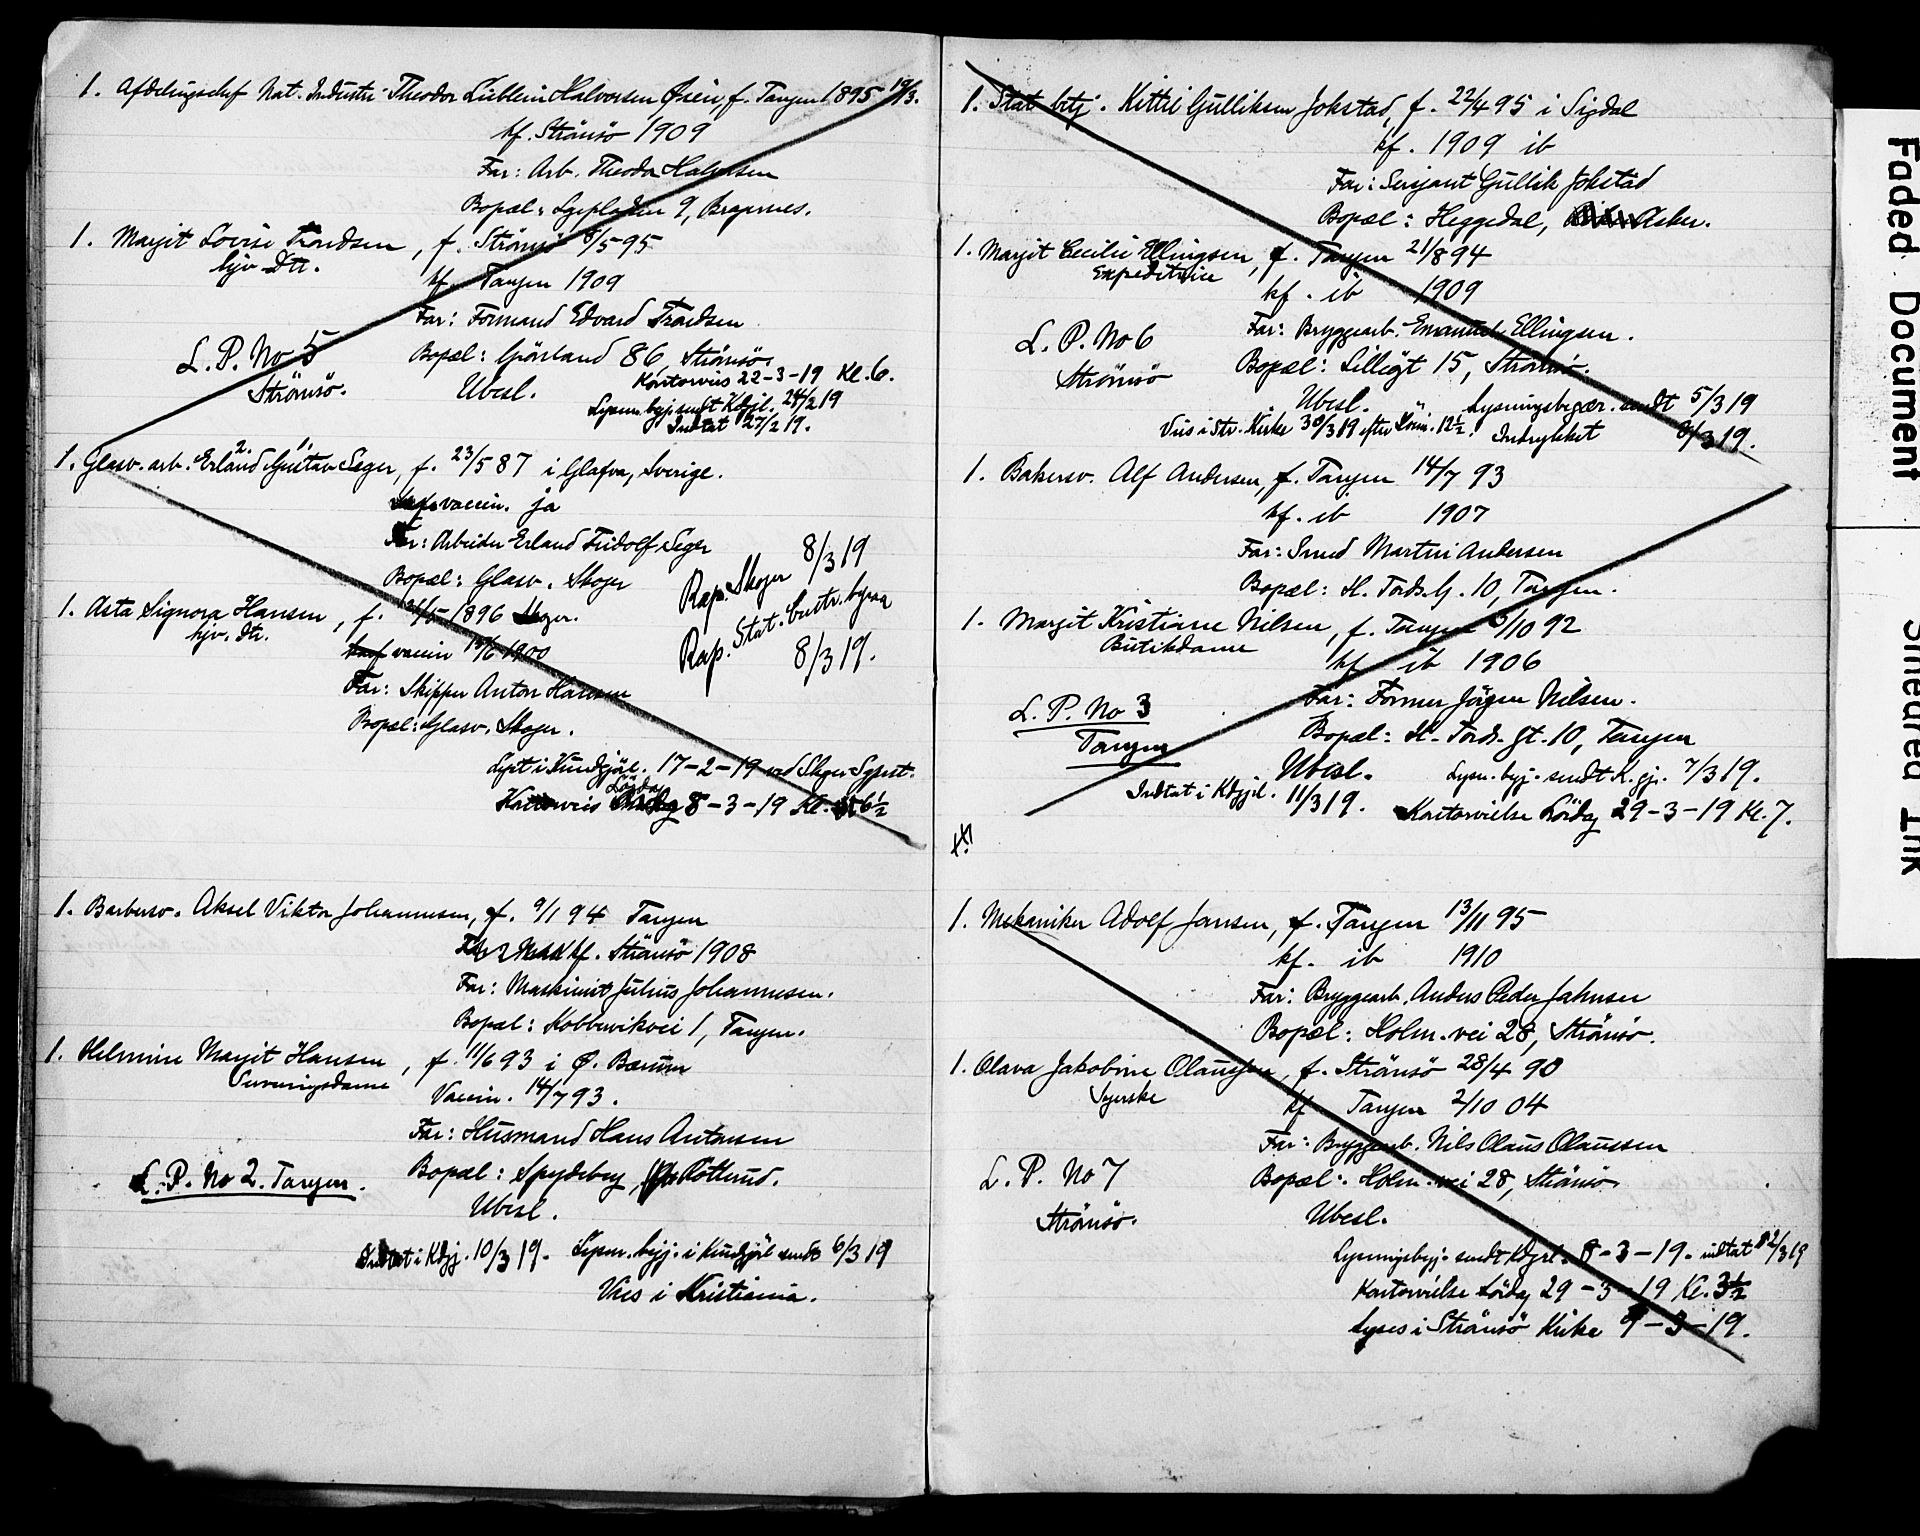 1. Afdelingschef Nat. Industri Theodor Lieblein Halvorsen Øsiei, f. Tangen 1895 19/3.
kf. Strömsö 1909
Far: Arb. Theodor Halvorsen
Bopæl: 9, Bragernes.
1. Margit Lovise Trondsen, f. Strömsö /5-95
hjv. Dtr.
kf. Tangen 1909
Far: Formand Edvard Trondsen
L. P. No 5
Bopæl: 86, Strömsö.
Strömsö.
Ubesl.
Kontorvies 22-3-19 Kl. 6.
Lysn. begj. sendt Kdgjl. 24/2 19
Indtat 27/2 19.
1. Glasv. arb. Erland 2. Gustav 1 Seger, f. 23/5 87 i Glafva, Sverige.
vaccin. ja
Far: Arbeider Erland Fridolf Seger
Bopæl: Glasv. Skoger
Rap. Skoger 8/3 19
1. Asta Signora Hansen, f. /5 1896 Skoger.
hjv. dtr.
Rap. Stat. Centr. byraa
8/3 19.
vaccin /6 1900
Far: Skipper Anton Hansen
Bopæl: Glasv. Skoger.
Lyst i Kundgjör. 17-2-19 ved Skoger Sypest.
Lördag
Kontorvies 8-3-19 Kl. 6½
1. Barbersv. Aksel Viktor Johannesen, f. 9/1 94 Tangen
kf. Strömsö 1908
Far: Maskinist Julius Johannesen.
Bopæl: Kobbervikvei 1, Tangen.
1. Helmine Margit Hansen, f. 11/6 93 i Ø. Bærum
Serveringsdame
Vaccin. 14/7 93.
Far: Husmand Hans Antonsen
L. P. No 2. Tangen.
Bopæl: Spydeberg, Rotterud.
Ubesl.
Indtat i Kdgj. 10/3 19. Lysn. begj. i Kundgjöl sendt 6/3 19
Vies i Kristiania.
1. Stat. btj. Kittil Gulliksen Jokstad, f. 22/4 95 i Sigdal
kf. 1909 ib
Far: Sersjant Gullik Jokstad
Bopæl: Heggedal, Asker.
1. Margit Cecilie Ellingsen, f. Tangen 21/8 94
Expeditrice
kf. ib 1909
L. P. No 6
Far: Bryggearb. Emanuel Ellingsen.
Strömsö
Bopæl: Lillegt 15, Strömsö.
Ubesl.
Lysningsbegær. sendt 5/3 19
Vies i Str. Kirke 30/3 19 efter 12½. Indrykket /3 19.
1. Bakersv. Alf Andersen, f. Tangen 14/7 93
kf. ib 1907
Far: Smed Martin Andersen
Bopæl: H. Tords. G. 10, Tangen.
1. Margit Kristiane Nilsen, f. Tangen /10 92
Butikdame
kf ib 1906
L. P. No 3
Far: Former Jörgen Nilsen.
Tangen
Bopæl: H. Tords. gt. 10, Tangen
Ubesl.
Lysn. begj. sendt K. gj. 7/3 19.
Indtat i Kdgjöl. 11/3 19.
Kontorvielse Lördag 29-3-19 Kl. 7.
1. Mekaniker Adolf Jansen, f. Tangen 13/11 95
kf. ib 1910
Far: Bryggearb. Anders Peder Jahnsen
Bopæl: Holm. vei 28, Strömsö.
1. Olava Jakobine Olaussen, f. Strömsö 28/4 90
Syerske
kf Tangen 2/10 04
Far: Bryggearb. Nils Olaus Olaussen
L. P. No 7
Bopæl: Holm. vei 28, Strömsö.
Strömsö.
Ubesl.
Lysningsbegj. sendt Kdgjöl. 8-3-19. indtat 12/3 19
Kontorvielse Lördag 29-3-19 Kl. 3½
Lyses i Strömsö Kirke 9-3-19.
Faded Document
Smeared Ink